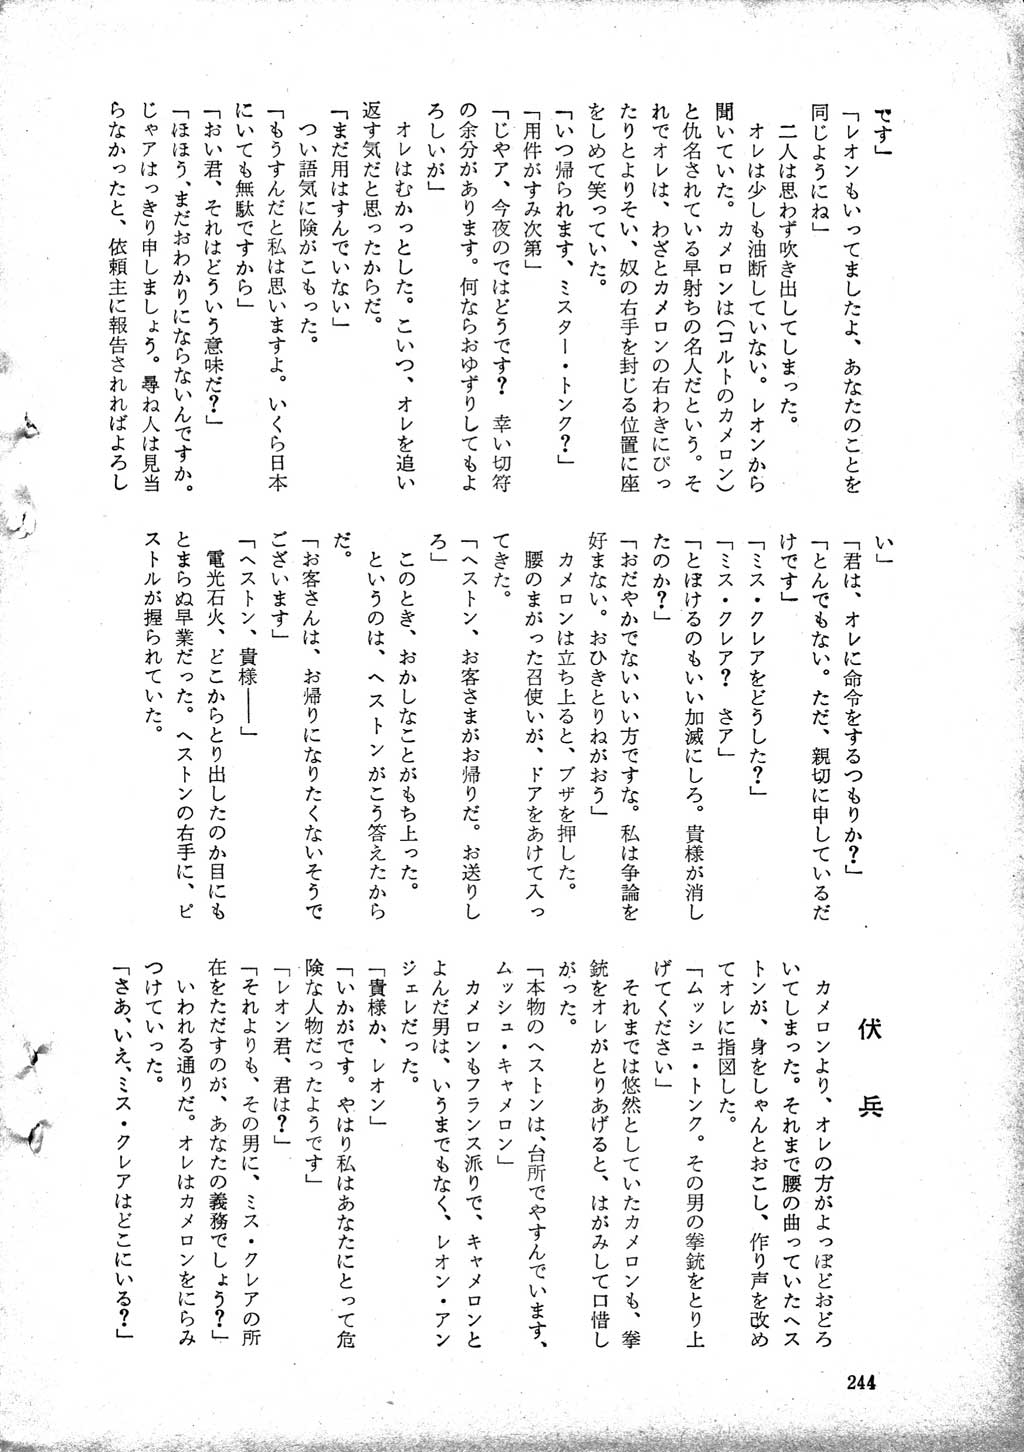 です」
「レオンもいってましたよ、あなたのことを
同じようにね」
二人は思わず吹き出してしまった。
オレは少しも油断していない。レオンから
聞いていた。カメロンは(コルトのカメロン)
と仇名されている早射ちの名人だという。そ
れでオレは、わざとカメロンの右わきにぴっ
たりとよりそい、奴の右手を封じる位置に座
をしめて笑っていた。
「いつ帰られます、ミスター・トンク?」
「用件がすみ次第」
「じゃア、今夜のではどうです? 幸い切符
の余分があります。何ならおゆずりしてもよ
ろしいが」
オレはむかっとした。こいつ、オレを追い
返す気だと思ったからだ。
「まだ用はすんでいない」
つい語気に険がこもった。
「もうすんだと私は思いますよ。いくら日本
にいても無駄ですから」
「おい君、それはどういう意味だ?」
「ほほう、まだおわかりにならないんですか。
じゃアはっきり申しましょう。尋ね人は見当
らなかったと、依頼主に報告されればよろし
い」
「君は、オレに命令をするつもりか?」
「とんでもない。ただ、親切に申しているだ
けです」
「ミス・クレアをどうした?」
「ミス・クレア? さア」
「とぼけるのもいい加減にしろ。貴様が消し
たのか?」
「おだやかでないいい方ですな。私は争論を
好まない。おひきとりねがおう」
カメロンは立ち上ると、ブザを押した。
腰のまがった召使いが、ドアをあけて入っ
てきた。
「ヘストン、お客さまがお帰りだ。お送りし
ろ」
このとき、おかしなことがもち上った。
というのは、ヘストンがこう答えたから
だ。
「お客さんは、お帰りになりたくないそうで
ございます」
「ヘストン、貴様――」
電光石火、どこからとり出したのか目にも
とまらぬ早業だった。ヘストンの右手に、ピ
ストルが握られていた。
伏兵
カメロンより、オレの方がよっぽどおどろ
いてしまった。それまで腰の曲っていたヘス
トンが、身をしゃんとおこし、作り声を改め
てオレに指図した。
「ムッシュ・トンク。その男の拳銃をとり上
げてください」
それまでは悠然としていたカメロンも、拳
銃をオレがとりあげると、はがみして口惜し
がった。
「本物のヘストンは、台所でやすんでいます、
ムッシュ・キャメロン」
カメロンもフランス派りで、キャメロンと
よんだ男は、いうまでもなく、レオン・アン
ジェレだった。
「貴様か、レオン」
「いかがです。やはり私はあなたにとって危
険な人物だったようです」
「レオン君、君は?」
「それよりも、その男に、ミス・クレアの所
在をただすのが、あなたの義務でしょう?」
いわれる通りだ。オレはカメロンをにらみ
つけていった。
「さあ、いえ、ミス・クレアはどこにいる?」
244